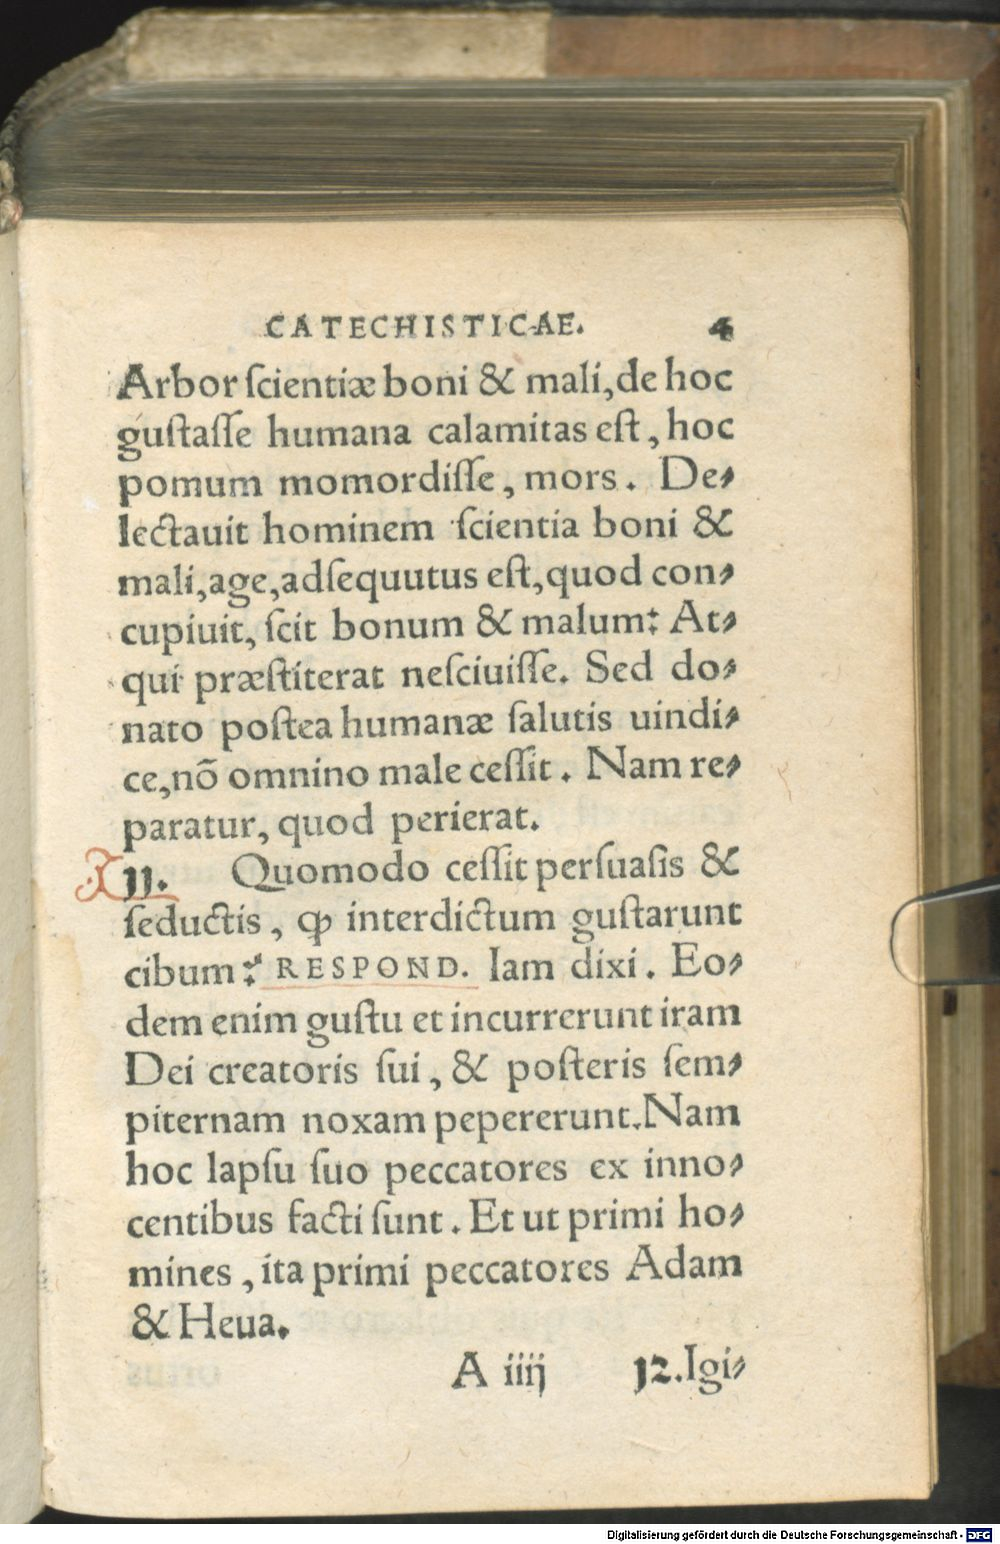 CATECHISTICAE. 4
Arbor ſcientiæ boni & mali, de hoc
guſtaſſe humana calamitas eſt, hoc
pomum momordiſſe, mors. De⸗
lectauit hominem ſcientia boni &
mali, age, adſequutus eſt, quod con⸗
cupiuit, ſcit bonum & malum: At⸗
qui præſtiterat neſciuiſſe. Sed do⸗
nato poſtea humanæ ſalutis uindi⸗
ce, nō omnino male ceſſit. Nam re⸗
paratur, quod perierat.
11. Quomodo ceſſit perſuaſis &
ſeductis, ꝙ interdictum guſtarunt
cibum: RESPOND. Iam dixi. Eo⸗
dem enim guſtu et incurrerunt iram
Dei creatoris ſui, & poſteris ſem⸗
piternam noxam pepererunt. Nam
hoc lapſu ſuo peccatores ex inno⸗
centibus facti ſunt. Et ut primi ho⸗
mines, ita primi peccatores Adam
& Heua.
A iiij 12. Igi⸗
Digitalisierung gefördert durch die Deutsche Forschungsgemeinschaft - DFG